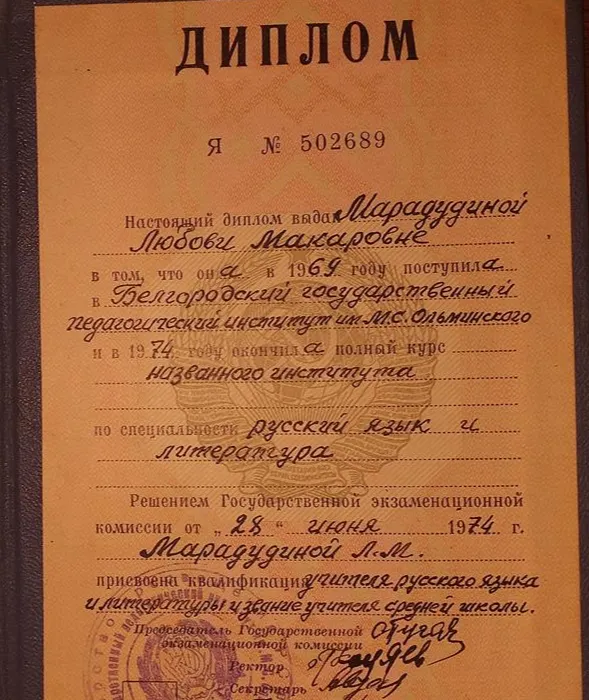 ДИПЛОМ
Я № 502689
Настоящий диплом выдан Марадудиной
Любови Макаровне
в том, что она в 1969 году поступила
в Белгородский государственный
педагогический институт им. М.С. Ольминского
и в 1974 году окончила полный курс
названного института
по специальности русский язык и
литература
Решением Государственной экзаменационной
комиссии от „28“ июня 1974 г.
Марадудиной Л.М.
присвоена квалификация учителя русского языка
и литературы и звание учителя средней школы.
Председатель Государственной
экзаменационной комиссии
Ректор
Секретарь